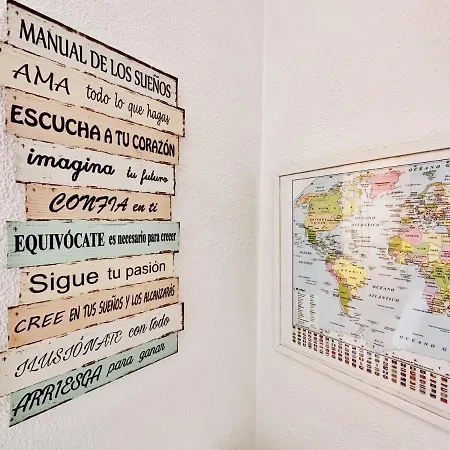 MANUAL DE LOS SUEÑOS
AMA todo lo que hagas
ESCUCHA A TU CORAZÓN
imagina tu futuro
CONFIA en ti
EQUIVÓCATE es necesario para crecer
Sigue tu pasión
CREE EN TUS SUEÑOS Y LOS ALCANZARÁS
ILUSIÓNATE con todo
ARRIESGA para ganar
OCÉANO GL
OCÉANO
ATLÁNTICO
OCÉANO
ATLÁNTICO
OCÉANO G